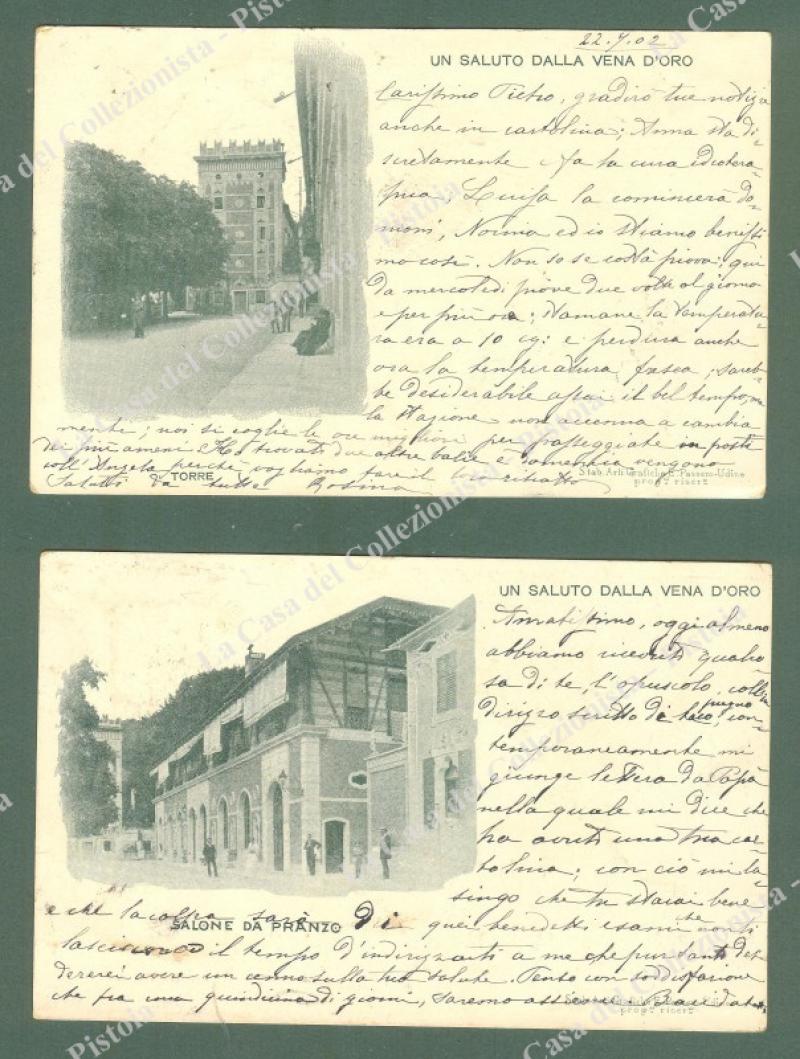 22.7.02
UN SALUTO DALLA VENA D'ORO
Carissimo Pietro, gradirò tue notizie
anche in cartolina; Anna sta di-
scretamente e fa la cura idrotera-
pica, Luisa la comincerà do-
mani, Norma ed io stiamo beniss-
mo così. Non so se costà piova; qui
da mercoledì piove due volte al giorno
e per più ore; stamane la temperatu-
ra era a 10 cg: e perdura anche
ora la temperatura fresca; sareb-
be desiderabile assai il bel tempo, ma
la stagione non accenna a cambia
menti; noi si coglie le ore migliori per passeggiate in posti
dei più ameni. Ho trovati due altre balie e domenica vengono
coll'Angela perchè vogliamo fare il ritratto
Saluti da tutte Rosina
TORRE
Stab. Arti Grafici E. Passero-Udine
propr riserz
UN SALUTO DALLA VENA D'ORO
Amatissimo, oggi almeno
abbiamo ricevuti qualco
sa di te, l'opuscolo, coll'in
dirizzo scritto di tuo pugno, con-
temporaneamente mi
giunge lettera da Papà
nella quale mi dice che
ha avuti una tua car
tolina; con ciò mi lu-
singo che tu starai bene
e che la colpa sarà di quei benedetti esami che non ti
SALONE DA PRANZO
lasciano il tempo d'indirizzarti a me che pur tanto desi-
dererei avere un cenno sulla tua salute. Penso con soddisfazione
che fra una quindicina di giorni, saremo assieme. Baci da
propr riserz
La Casa del Collezionista - Pistoia